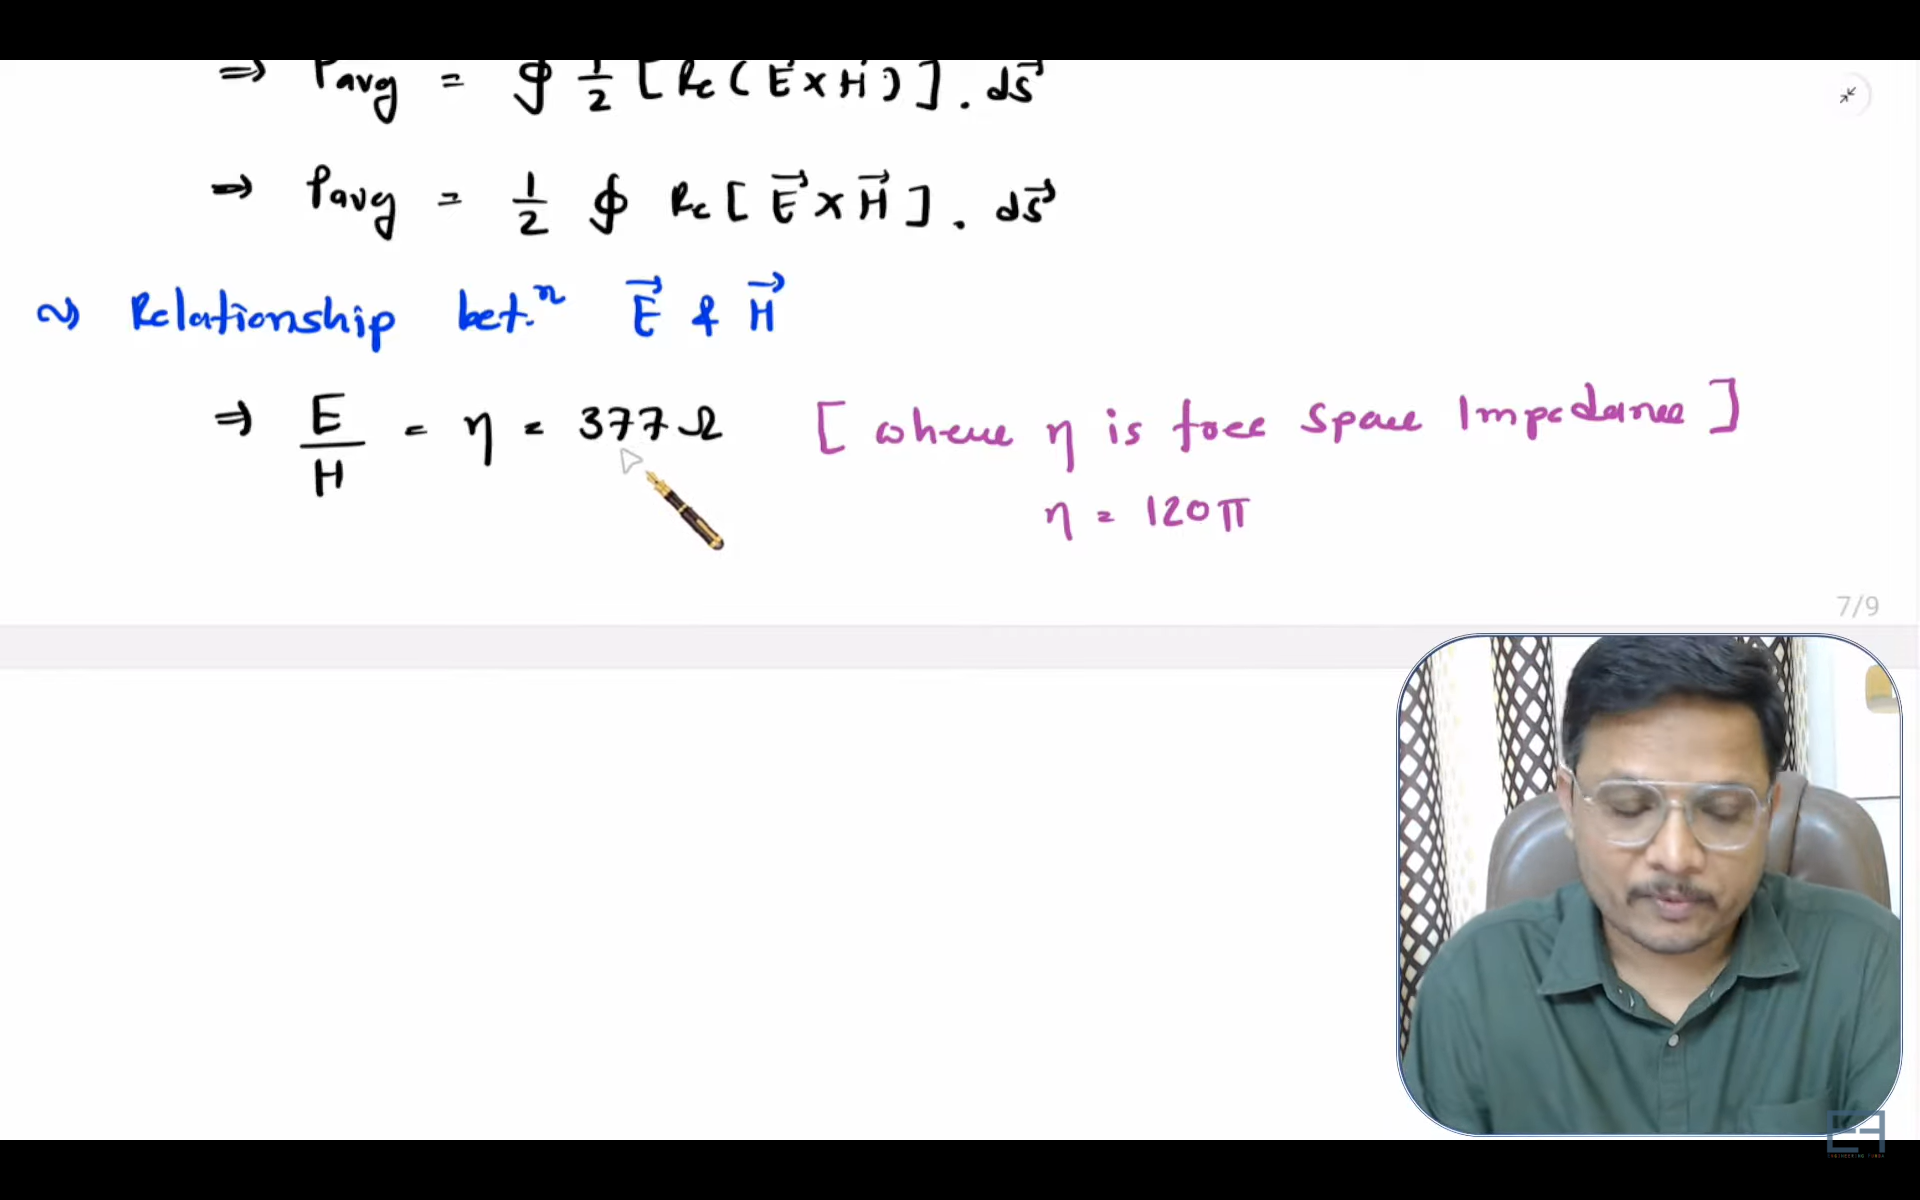 ⇒ Pavg = ∮ 1/2 [Re(E⃗ × H⃗)] . ds⃗
⇒ Pavg = 1/2 ∮ Re[E⃗ × H⃗] . ds⃗
Relationship bet.n E⃗ & H⃗
⇒ E/H = η = 377Ω [where η is free space Impedance]
η = 120π
7/9